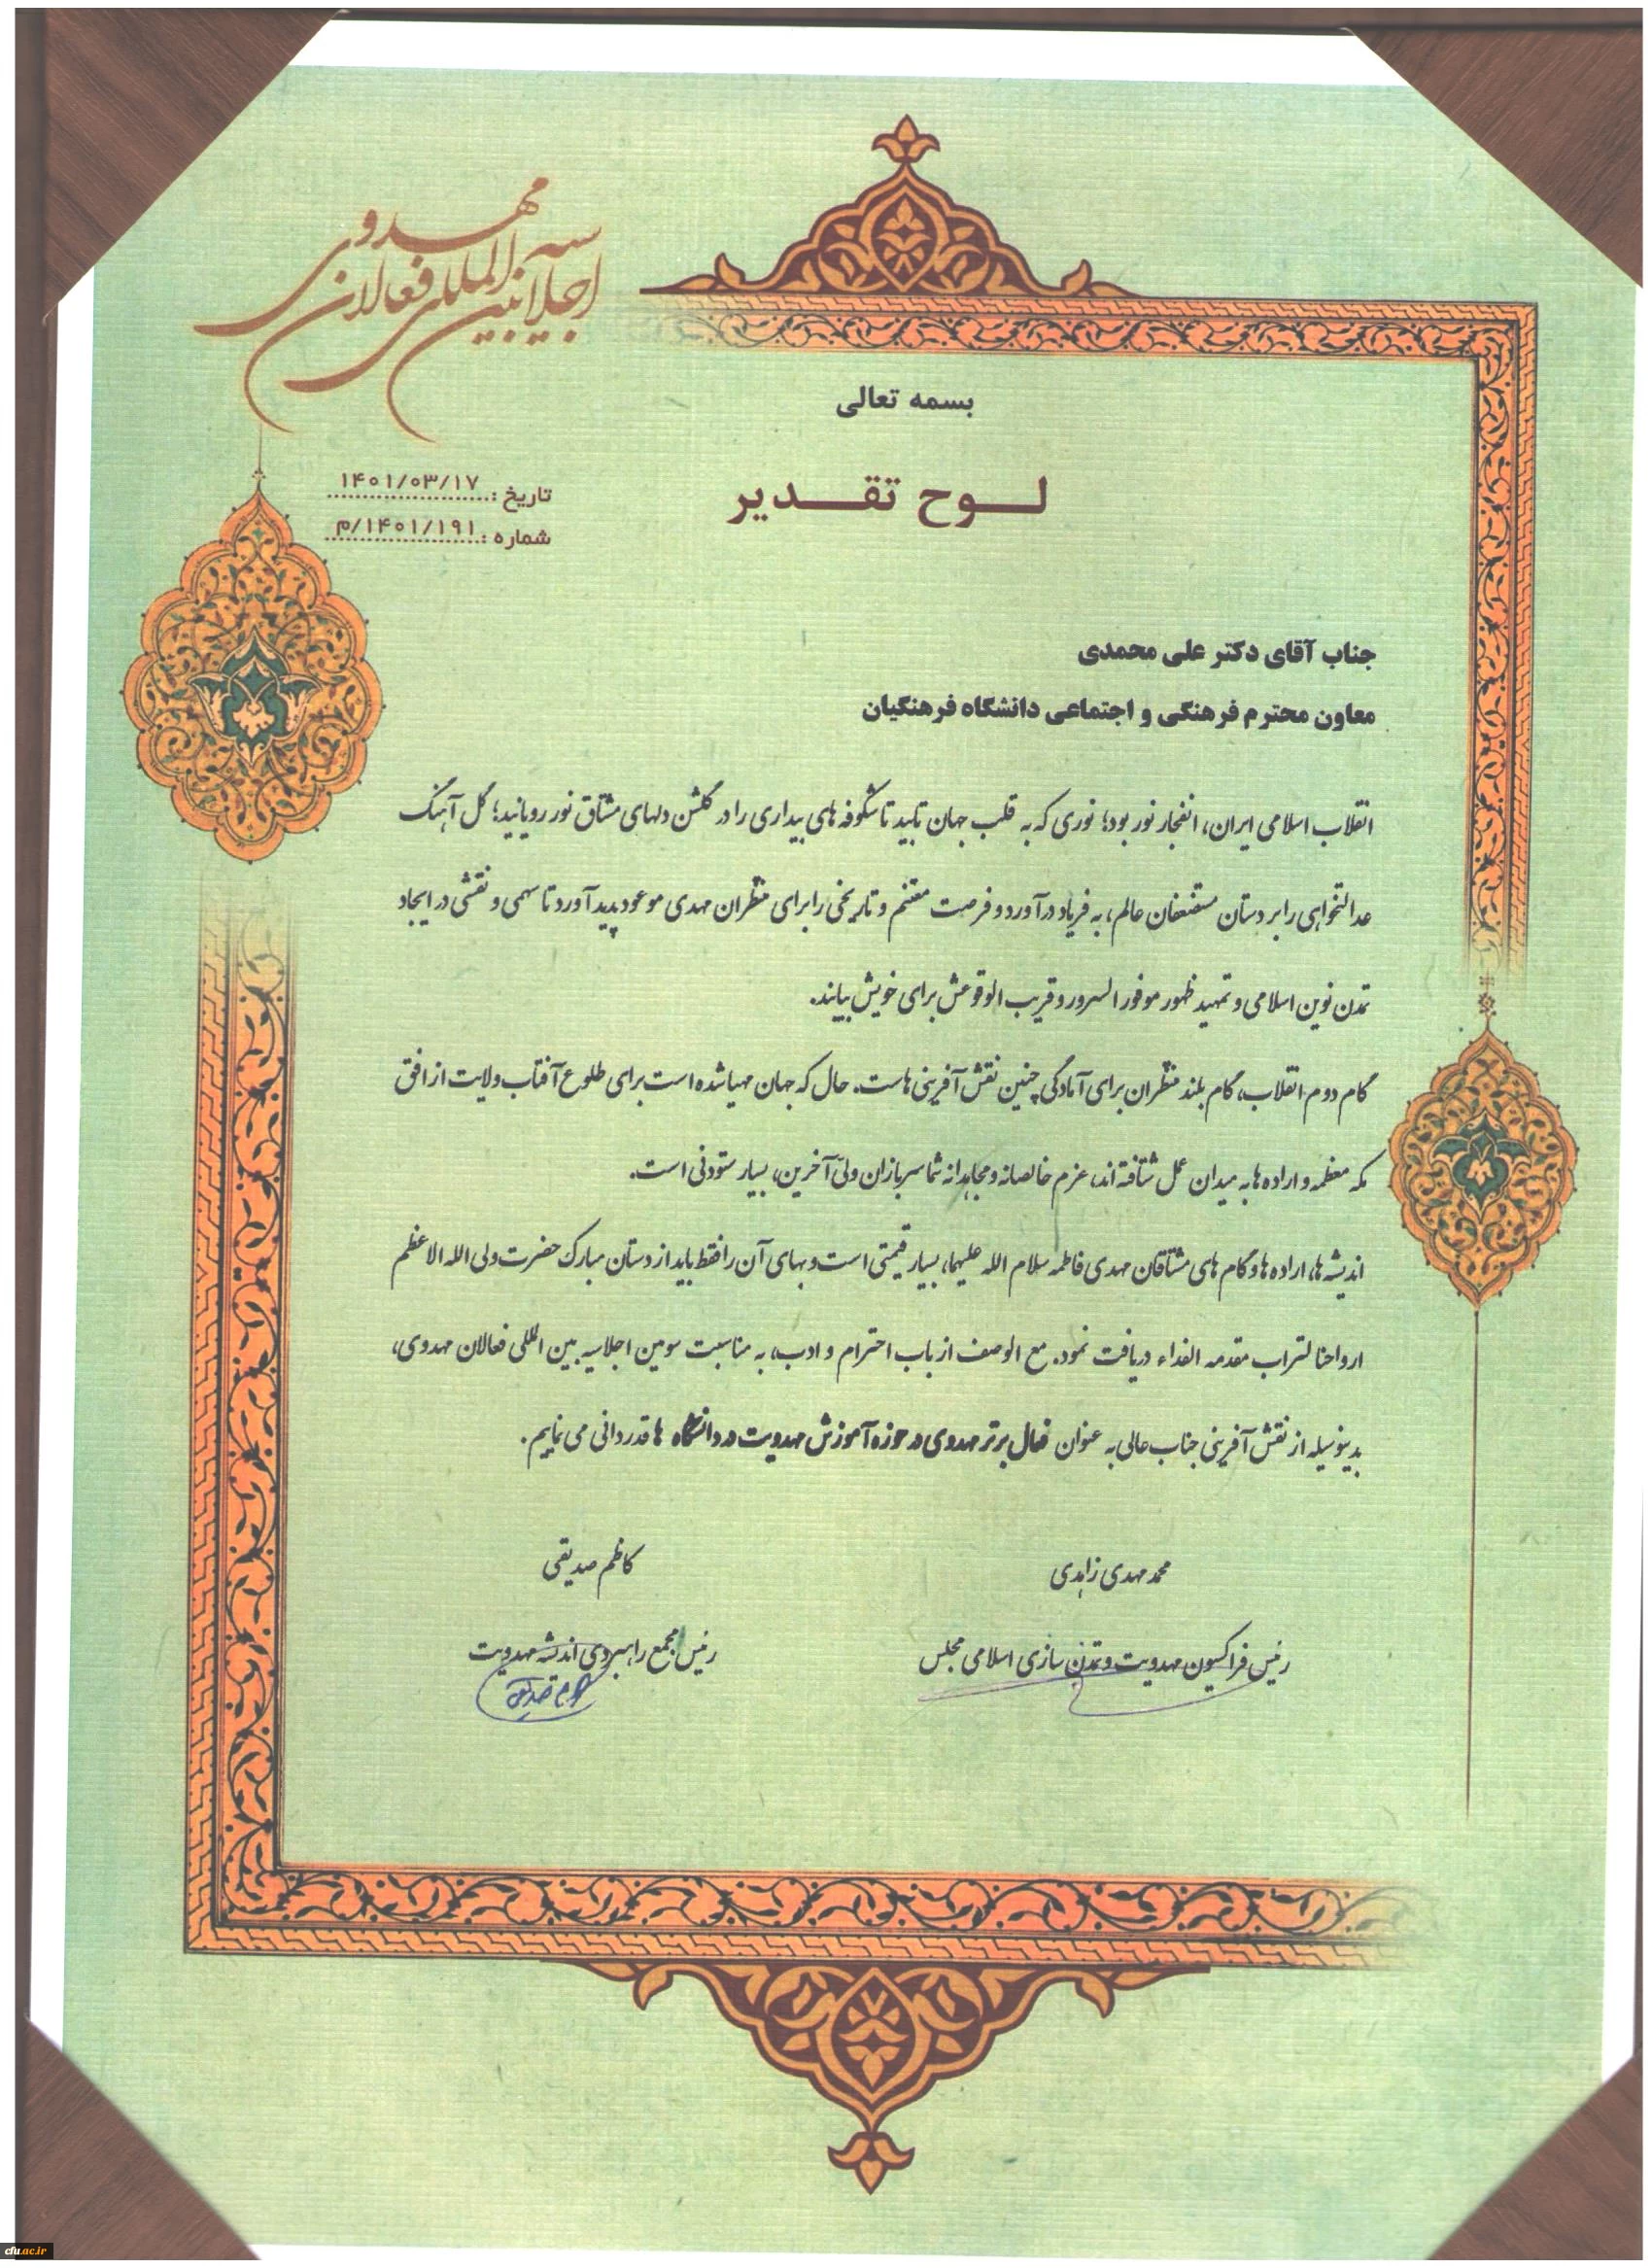 اجلاسیه بین المللی فعالان مهدوی
بسمه تعالی
تاریخ: ۱۴۰۱/۰۳/۱۷
لوح تقدیر
شماره: ۱۴۰۱/۱۹۱/م
جناب آقای دکتر علی محمدی
معاون محترم فرهنگی و اجتماعی دانشگاه فرهنگیان
انقلاب اسلامی ایران، انفجار نور بود؛ نوری که به قلب جهان تابید تا شکوفه های بیداری را در گلشن دلهای مشتاق نور رویانید؛ گل آهنگ
عدالتخواهی را بر دستان مستضعفان عالم، به فریاد درآورد و فرصت مغتنم و تاریخی را برای منتظران مهدی موعود پدید آورد تا سهمی و نقشی در ایجاد
تمدن نوین اسلامی و تمهید ظهور موفور السرور و قریب الوقوعش برای خویش بیابند.
گام دوم انقلاب، گام بلند منتظران برای آمادگی چنین نقش آفرینی هاست. حال که جهان مهیا شده است برای طلوع آفتاب ولایت از افق
مکه معظمه و اراده ها به میدان عمل شتافته اند، عزم خالصانه و مجاهدانه شما سربازان ولیّ آخرین، بسیار ستودنی است.
اندیشه ها، اراده ها و گام های مشتاقان مهدی فاطمه سلام الله علیهما، بسیار قیمتی است و بهای آن را فقط باید از دستان مبارک حضرت ولی الله الاعظم
ارواحنا لتراب مقدمه الفداء دریافت نمود. مع الوصف از باب احترام و ادب، به مناسبت سومین اجلاسیه بین المللی فعالان مهدوی،
بدینوسیله از نقش آفرینی جناب عالی به عنوان فعال برتر مهدوی در حوزه آموزش مهدویت در دانشگاه ها قدردانی می نماییم.
محمد مهدی زاهدی
رئیس فراکسیون مهدویت و تمدن سازی اسلامی مجلس
کاظم صدیقی
رئیس مجمع راهبردی اندیشه مهدویت
cfu.ac.ir